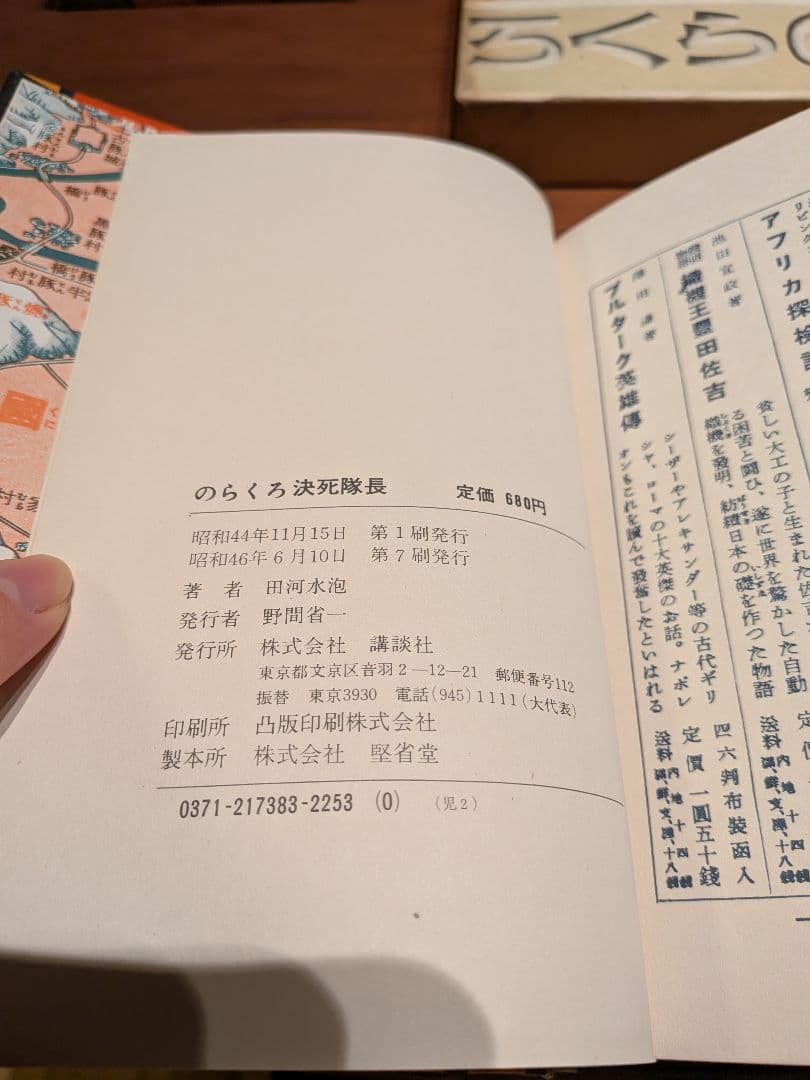 のらくろ 決死隊長 定価 680円
昭和44年11月15日 第1刷発行
昭和46年6月10日 第7刷発行
著者 田河水泡
発行者 野間省一
発行所 株式会社 講談社
東京都文京区音羽2―12―21 郵便番号112
振替 東京3930 電話(945)1111(大代表)
印刷所 凸版印刷株式会社
製本所 株式会社 堅省堂
0371-217383-2253 (0) (児2)
アフリカ探検
池田宣政著
織機王豊田佐吉
貧しい大工の子と生まれた佐吉
る困苦と闘ひ、遂に世界を驚かした自動
織機を發明、紡織日本の礎を作つた物語
澤田謙著
プルターク英雄傳
シーザーやアレキサンダー等の古代ギリ
シヤ、ローマの十大英傑のお話。ナポレ
オンもこれを讀んで發奮したといはれる
四六判布装函入
定價 一圓五十錢
送料 内地十四錢
ろくらの